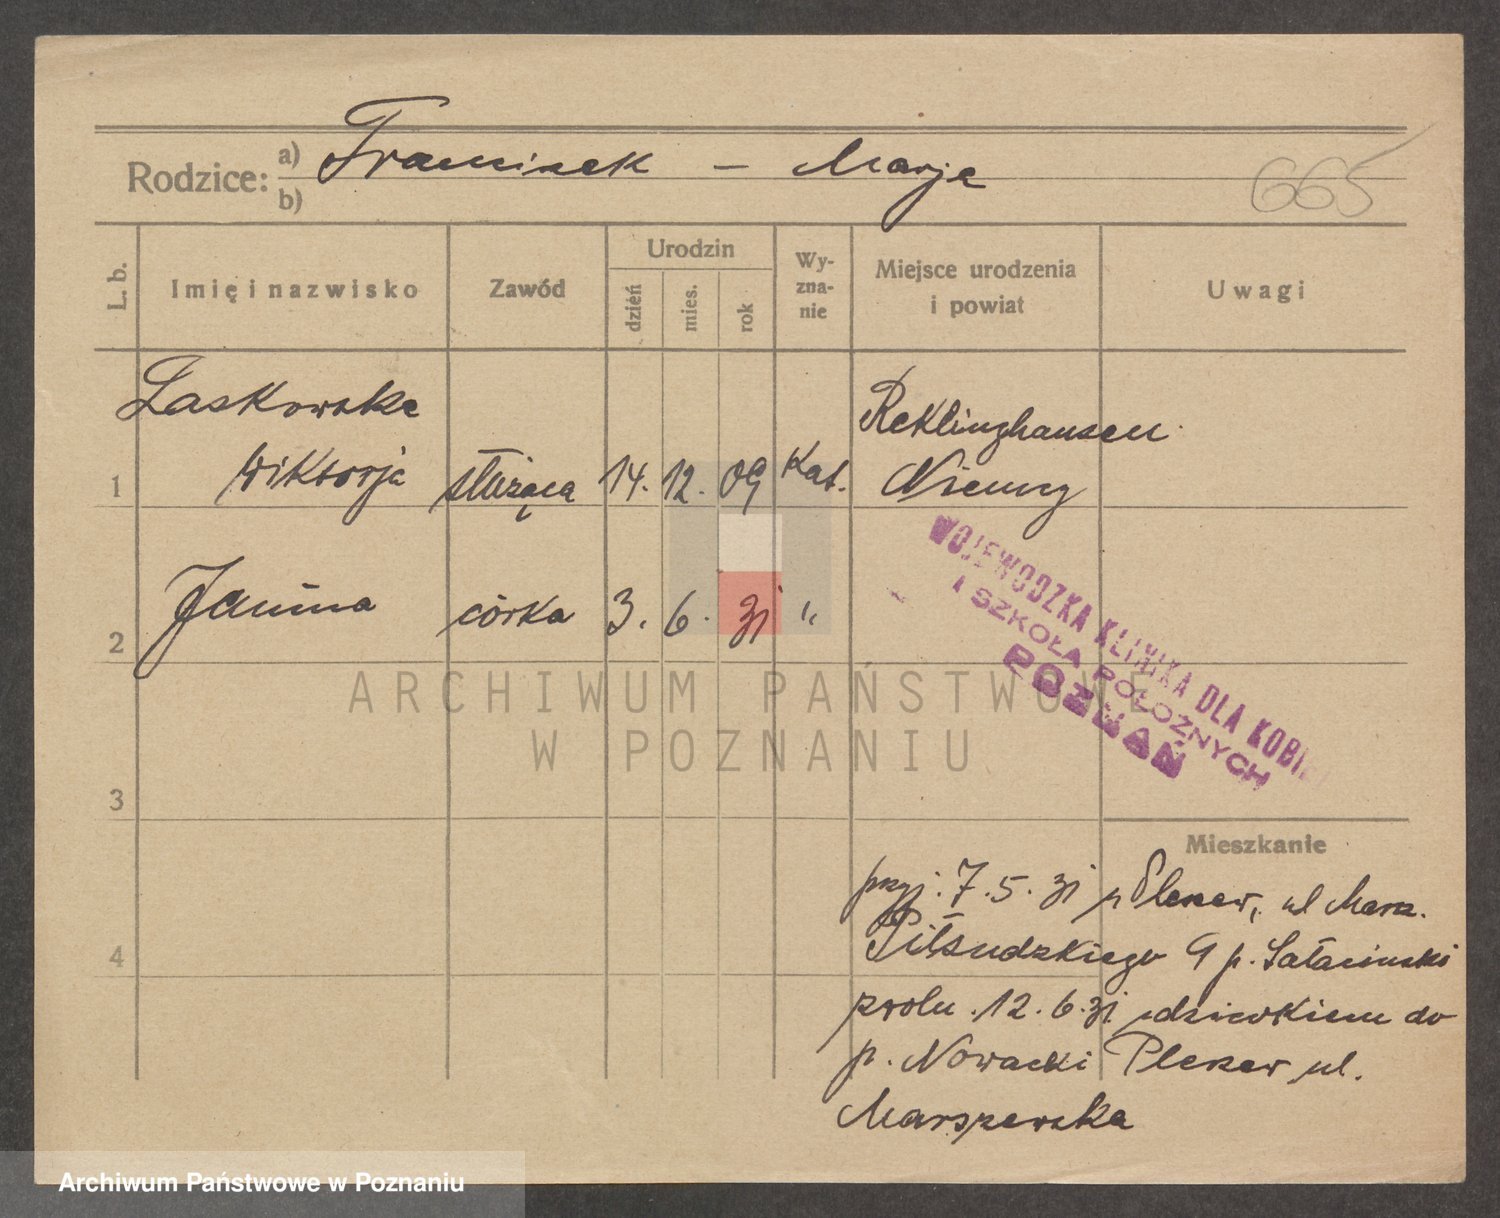 Rodzice: a) Franciszek – Marja
b)
665
L. b.
Imię i nazwisko
Zawód
Urodzin
dzień
mies.
rok
Wy-
zna-
nie
Miejsce urodzenia
i powiat
Uwagi
Laskowska
Wiktorja
1
służąca
14. 12. 09
Kat.
Reklinghausen
Niemcy
2
Janina
córka
3. 6. 31
"
WOJEWÓDZKA KLINIKA DLA KOBIET
I SZKOŁA POŁOŻNYCH
POZNAŃ
ARCHIWUM PAŃSTWOWE
W POZNANIU
3
4
Mieszkanie
przyj. 7.5.31 z Pleszew, ul Marsz.
Piłsudzkiego 9 p. Sałacinski
zwoln. 12.6.31. z dzieckiem do
p. Nowacki Pleszew ul.
Marszewska
Archiwum Państwowe w Poznaniu